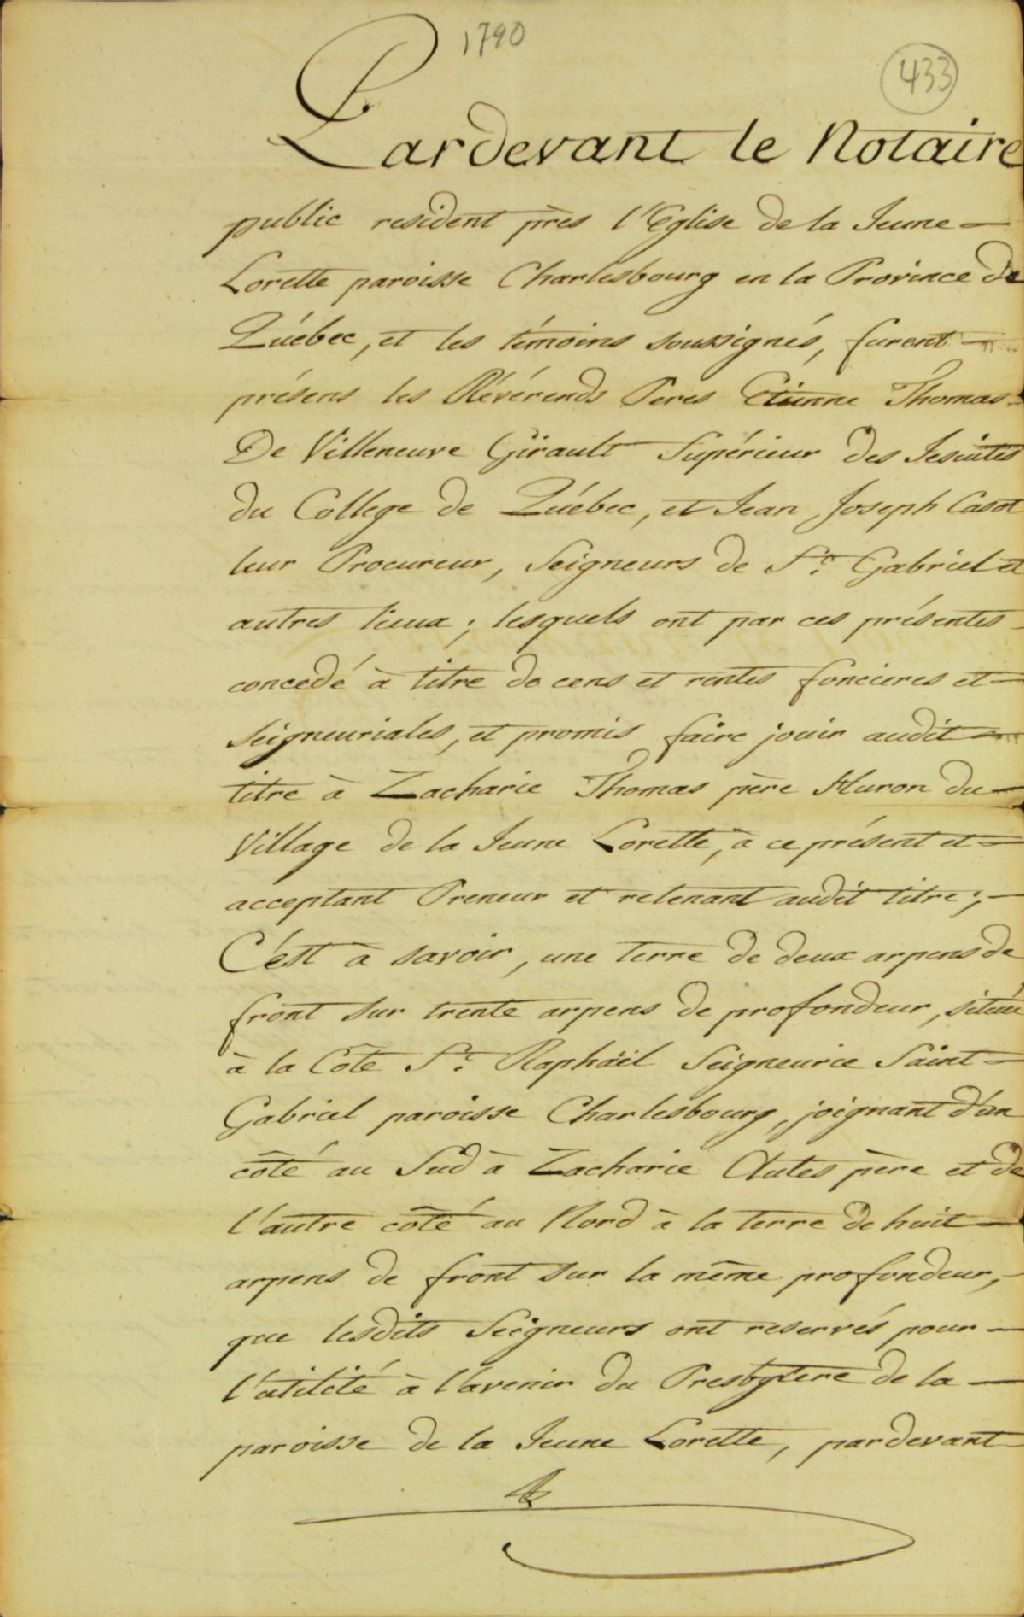 1790
433
Pardevant le Notaire
public resident près l'Eglise de la Jeune
Lorette paroisse Charlesbourg en la Province de
Québec, et les témoins soussignés, furent
présens les Révérends Peres Etienne Thomas
De Villeneuve Girault Supérieur des Jesuites
du College de Québec, et Jean Joseph Casot
leur Procureur, Seigneurs de St. Gabriel et
autres lieux; lesquels ont par ces présentes
concedé à titre de cens et rentes foncieres et
Seigneuriales, et promis faire jouir audit
titre à Zacharie Thomas père Huron du
Village de la Jeune Lorette, à ce présent et
acceptant Preneur et retenant audit titre;
C'est à savoir, une terre de deux arpens de
front sur trente arpens de profondeur, située
à la Côte St. Raphäel Seigneurie Saint
Gabriel paroisse Charlesbourg, joignant d'un
côté au Sud à Zacharie père et de
l'autre côté au Nord à la terre de huit
arpens de front sur la même profondeur,
que lesdits Seigneurs ont reservés pour
l'utilité à l'avenir du Presbytere de la
paroisse de la Jeune Lorette, pardevant